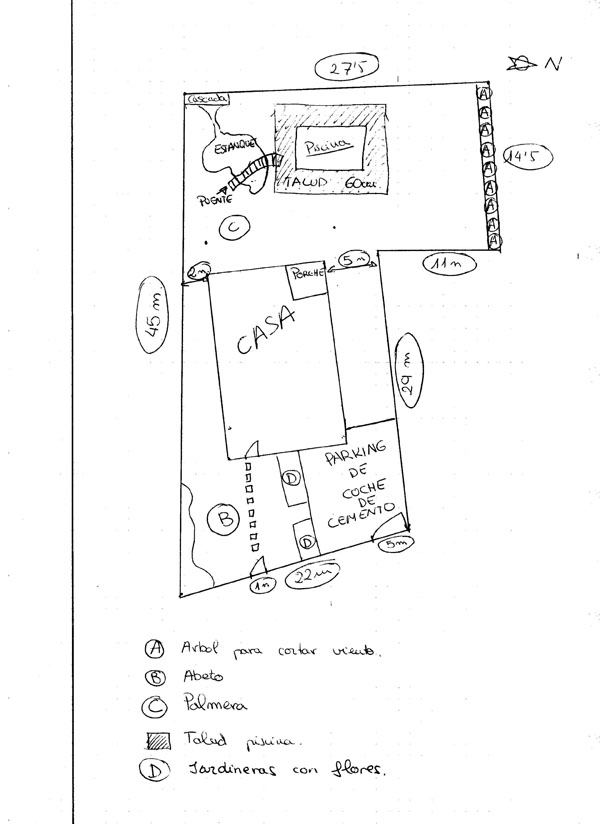 27'5
N
Cascada
A
ESTANQUE
Piscina
A
A
A
14'5
A
TALUD 60cm
A
PUENTE
A
C
A
A
2m
5m
11m
PORCHE
45 m.
CASA
29 m
PARKING
DE
COCHE
DE
CEMENTO
D
B
D
5m
1m
22m
A Arbol para cortar viento.
B Abeto
C Palmera
Talud piscina.
D Jardineras con flores.